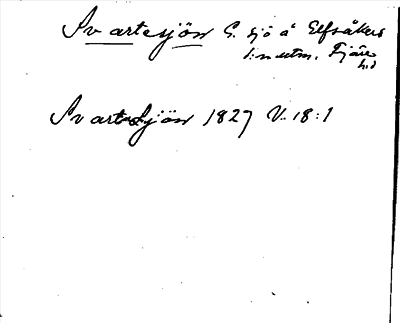 Svartesjön C. sjö å Elfsåkers
Fjäre
hd
Svartesjön 1827 V. 18:1